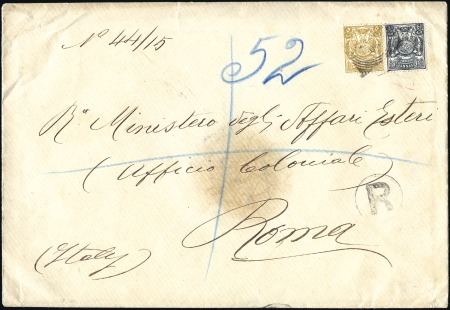 Nº 44/15
52
Rº Ministero degli Affari Esteri
Ufficio Coloniale
R
Roma
(Italy)